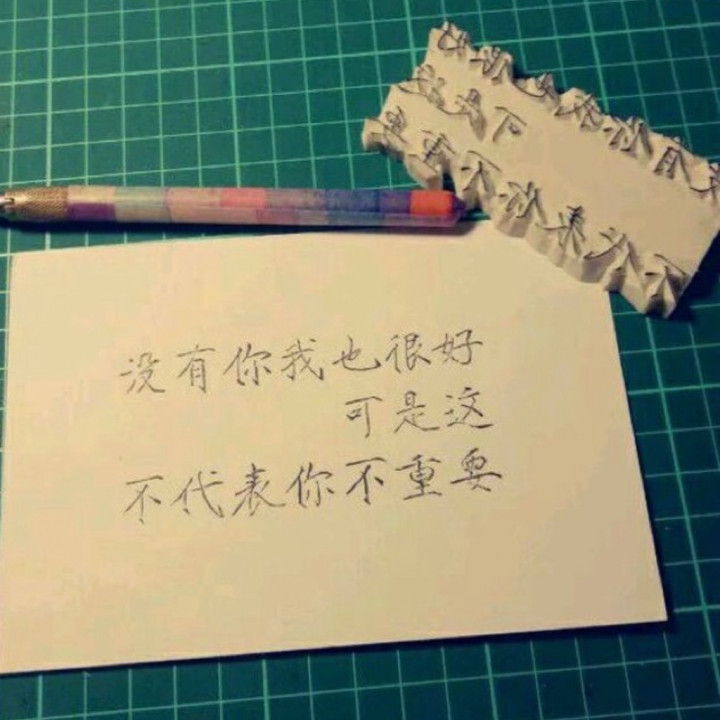 没有你我也很好
可是这
不代表你不重要